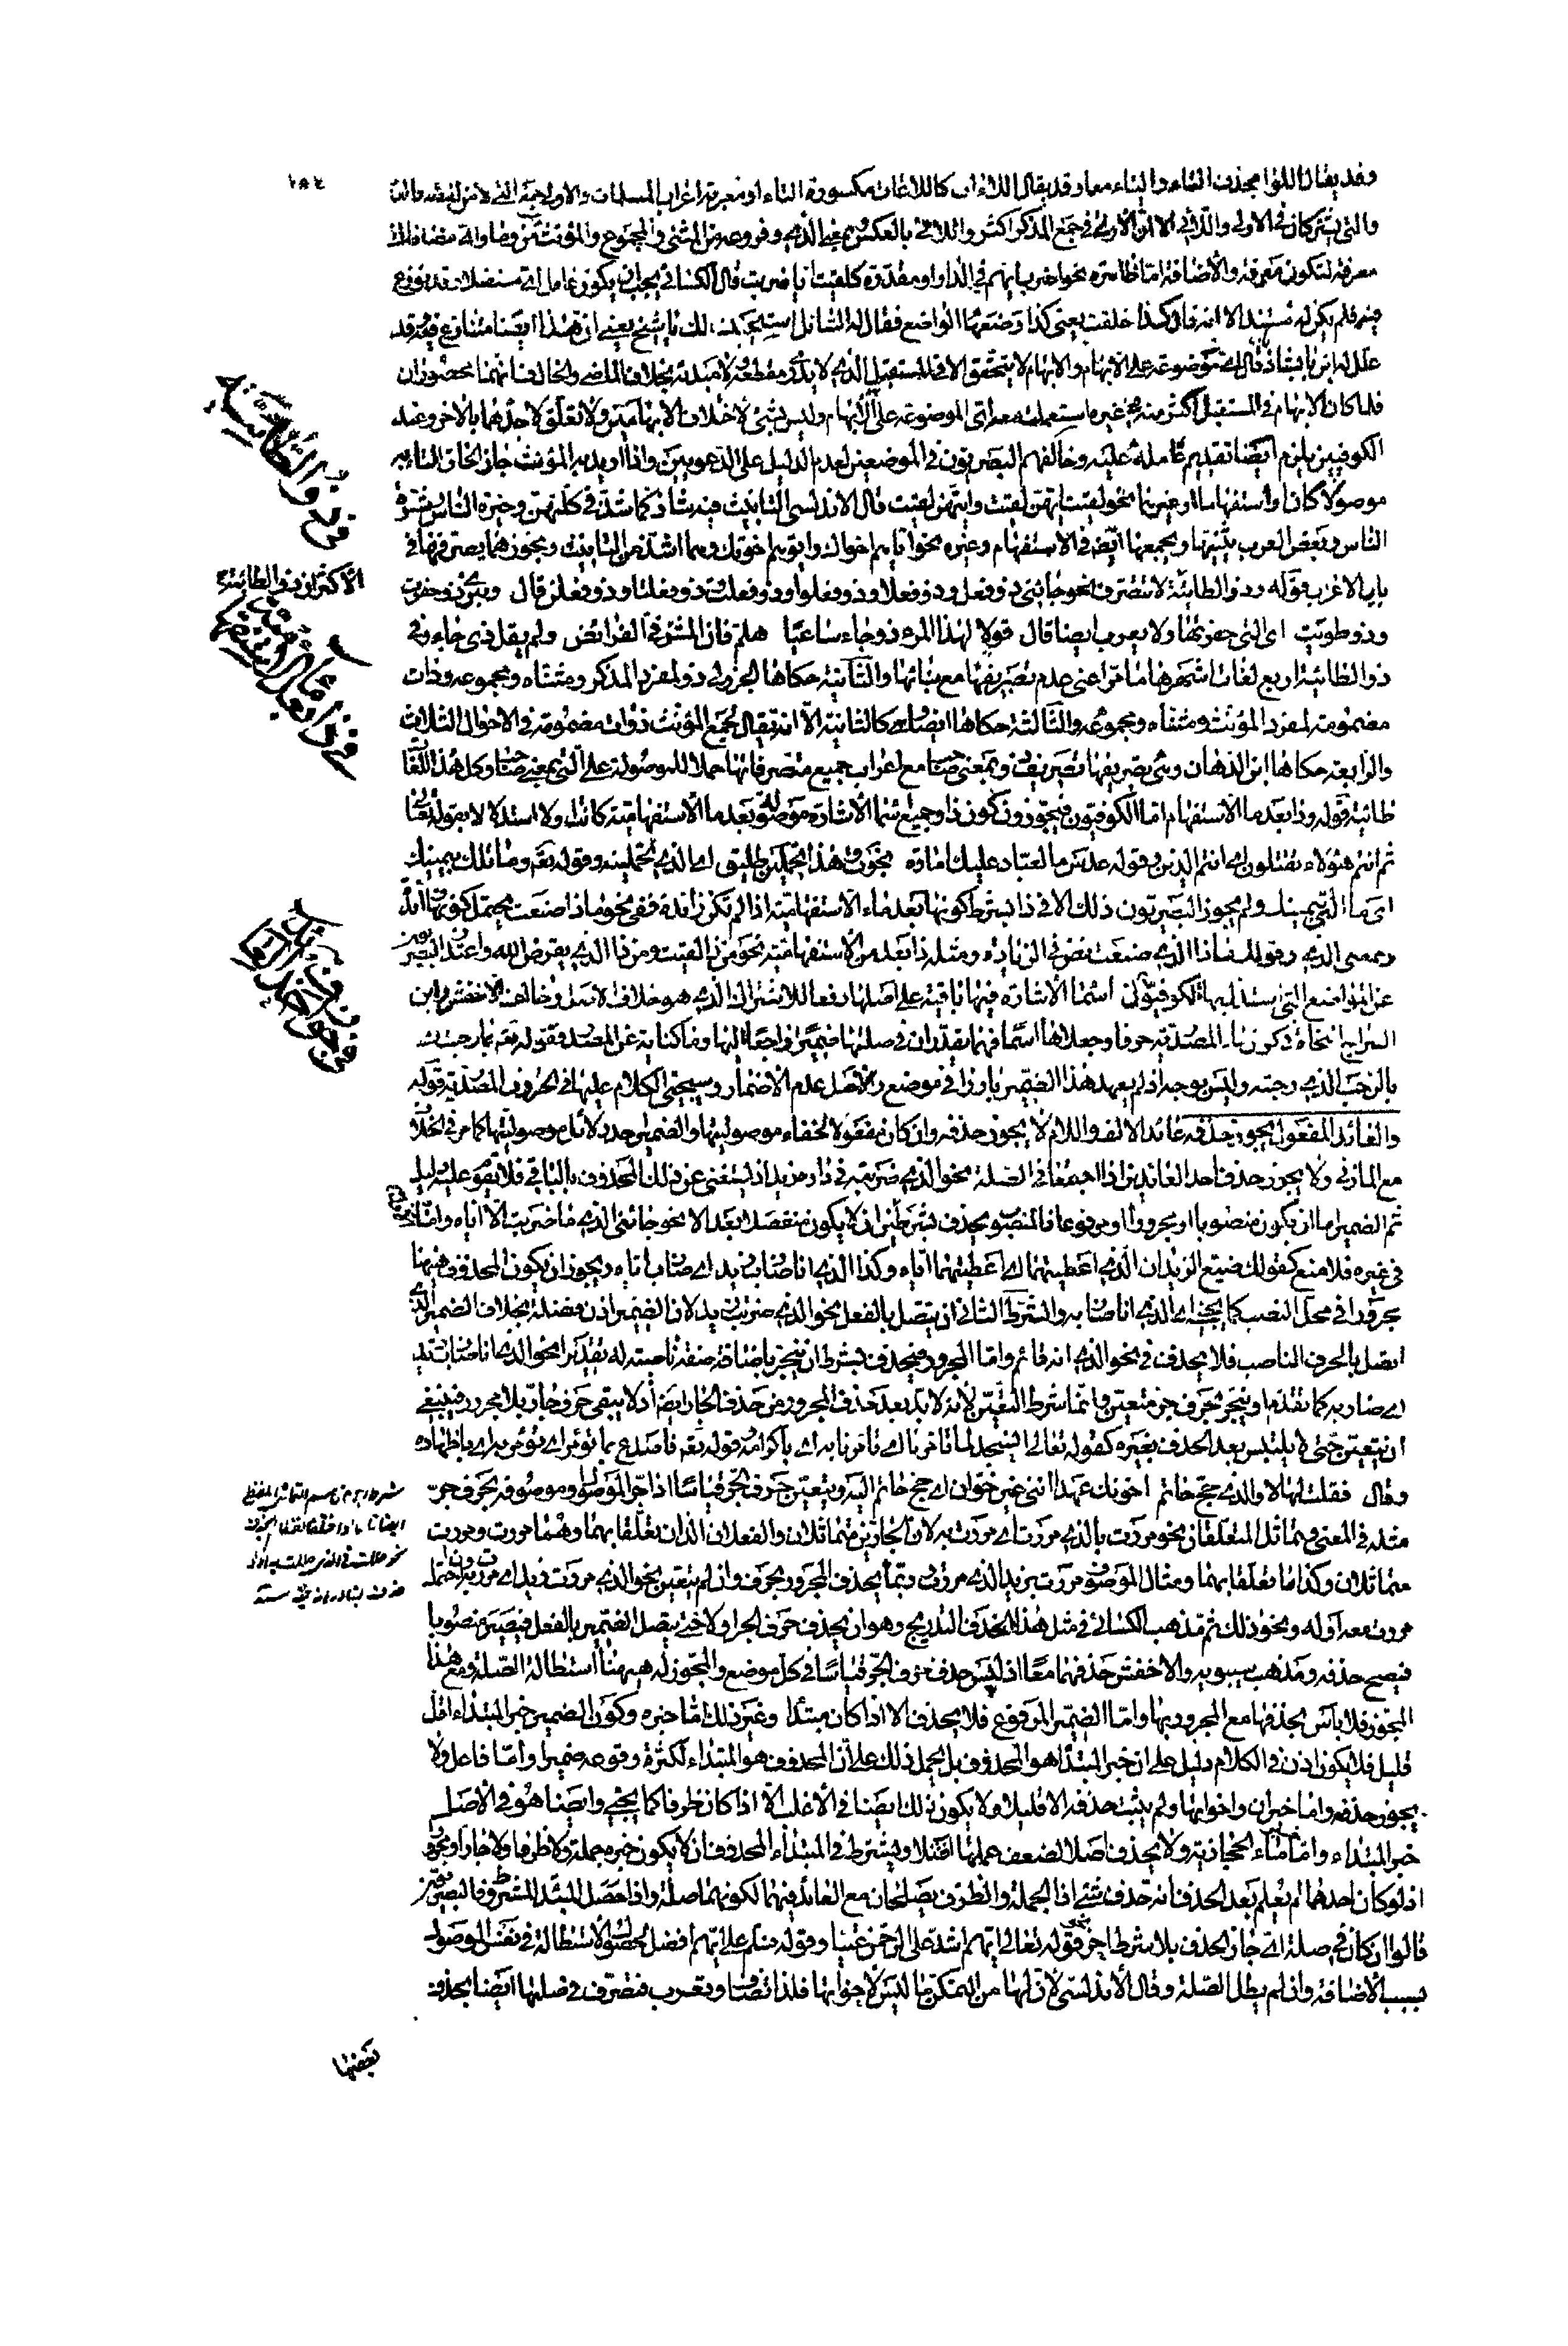 وقد يقال اللوا بحذف التاء والياء معا وقد يقال اللاءات كاللاغات مكسورة التاء او معربة اعراب المسلمات والاولى
والتى يشتركان فى الاولى واللائى الا ان الاولى فى جمع المذكر اكثر واللائى بالعكس بمعنى الذى وفروعه من المثنى والمجموع والمؤنث
معرفة لتكون معرفة والاضافة اما ظاهرة نحو اضرب ايهم فى الدار او مقدرة كلقيت ايا ضربت قال الكسائى يجب ان يكون عامل اى مستقبلا
فلم يكن له مستند الا انه قال كذا خلقت يعنى كذا وضعها الواضع فقال له السائل استحييت لك يا شيخ يعنى ان هذا ايضا متنازع فيه وقد
علل له ابن بابشاذ قال اى موضوعة على الابهام والابهام لا يتحقق الا فى المستقبل الذى لا يدرى مقطعه ولا مبدئه بخلاف الماضى والحال فانهما محصوران
فلما كان الابهام فى المستقبل اكثر منه فى غيره استعملت معه اى الموضوعة على الابهام وليس بشئ لاختلاف الابهامين ولا تعلق لاحدهما بالاخر وعند
الكوفيين يلزم ايضا تقديم عامله عليه وخالفهم البصريون فى الموضعين لعدم الدليل على الدعويين واذا اريد به المؤنث جاز الحاق التاء به
موصولا كان او استفهاما او غيرهما نحو لقيت ايتهن لقيت وايتهن لقيت قال الاندلسى التانيث فيه شاذ كما شذ فى كلتهن وخيرة الناس وشرة
الناس وبعض العرب يثنيها ويجمعها ايضا فى الاستفهام وغيره نحو اياهم اخواك وايوهم اخوتك وهما اشذ من التانيث ويجوز هما يصرفهما فى
باب الاعراب قوله وذو الطائية لا تتصرف نحو جائنى ذو فعل وذو فعلا وذو فعلوا وذو فعلت وذو فعلتا وذو فعلن قال وبئرى ذو حفرت
وذو طويت اى التى حفرتها ولا يعرب ايضا قال قولا لهذا المرء ذو جاء ساعيا هلم فان المشرفى الفرائض ولم يقل ذى جاء وفى
ذو الطائية اربع لغات اشهرها ما مر اعنى عدم تصريفها مع بنائها والثانية حكاها الجزولى ذو لمفرد المذكر ومثناه ومجموعه وذات
مضمومة لمفرد المؤنث ومثناه ومجموعه والثالثة حكاها ايضا وهى كالثانية الا انه يقال لجمع المؤنث ذوات مضمومة فى الاحوال الثلاث
والرابعة حكاها ابن الدهان وهى تصريفها تصريف ذو بمعنى صاحب مع اعراب جميع متصرفاتها حملا للموصولة على التى بمعنى صاحب وكل هذه اللغات
طائية قوله وذا بعد ما الاستفهام اما الكوفيون فيجوزون كون ذا وجميع اسماء الاشارة موصولة بعد ما الاستفهامية كانت او لا استدلالا بقوله تعالى
ثم انتم هؤلاء تقتلون اى انتم الذين وقوله عدس ما لعباد عليك امارة نجوت وهذا تحملين طليق اى الذى تحملينه وقوله تعالى وما تلك بيمينك
اى ما التى بيمينك ولم يجوز البصريون ذلك الا فى ذا بشرط كونها بعد ما الاستفهامية اذا لم تكن زائدة ففى نحو ماذا صنعت يحتمل كونها زائدة
وبمعنى الذى وقولك ماذا الذى صنعت نص فى الزيادة ومثله ذا بعد من الاستفهامية نحو من ذا لقيت ومن ذا الذى يقرض الله واعتذر البصريون
عن المواضع التى يستدل بها الكوفيون ان اسماء الاشارة فيها باقية على اصلها دفعا للاشتراك الذى هو خلاف الاصل وخالف الاخفش وابن
السراج النحاة فى كون ما المصدرية حرفا وجعلاها اسما فهما يقدران فى صلتها ضميرا راجعا اليها وهى كناية عن المصدر فقوله تعالى بما رحبت
بالرحب الذى رحبته وليس بوجه اذ لم يعهد هذا الضمير بارزا فى موضع والاصل عدم الاضمار وسيجئ الكلام عليها فى الحروف المصدرية قوله
والعائد المفعول يجوز حذفه عائد الالف واللام لا يجوز حذفه وان كان مفعولا لخفاء موصوليتها والضمير احد دلائل موصوليتها كما مر فى الخلاف
مع المازنى ولا يجوز حذف احد العائدين اذا اجتمعا فى الصلة نحو الذى ضربته فى داره زيد اذ يستغنى عن ذلك المحذوف بالباقى فلا يقوم عليه دليل
ثم الضمير اما ان يكون منصوبا او مجرورا او مرفوعا فالمنصوب يحذف بشرطين ان لا يكون منفصلا بعد الا نحو جائنى الذى ما ضربت الا اياه واما
فى غيره فلا منع كقولك ضيع الزيدان الذى اعطيتهما اى اعطيتهما اياه وكذا الذى انا ضارب زيد اى ضارب اياه ويجوز ان يكون المحذوف هيهنا
مجرورا فى محل النصب كما يجئ اى الذى انا ضاربه والشرط الثانى ان يتصل بالفعل نحو الذى ضربت زيد لان الضمير اذن فضلة بخلاف الضمير الذى
اتصل بالحرف الناصب فلا يحذف فى نحو الذى انه قائم واما المجرور فيحذف بشرط ان ينجر باضافة صفة ناصبة له تقديرا نحو الذى انا ضارب زيد
اى ضاربه كما تقدم او ينجر بحرف جر متعين وانما شرط التعين لانه لا بد بعد حذف المجرور من حذف الجار ايضا اذ لا يبقى حرف جار بلا مجرور فينبغى
ان يتعين حتى لا يلتبس بعد الحذف بغيره كقوله تعالى انسجد لما تامرنا اى تامرنا به اى باكرامه وقوله تعالى فاصدع بما تؤمر اى تؤمر به اى باظهاره
وقال فقلت لها لا والذى حج حاتم اخونك عهدا اننى غير خوان اى حج حاتم اليه ويتعين حرف الجر قياسا اذا جر الموصول او موصوفه بحرف جر
مثله فى المعنى وتماثل المتعلقان نحو مررت بالذى مررت اى مررت به لان الجارين متماثلان والفعلان اللذان تعلقا بهما وهما مررت ومررت
متماثلان وكذا ما تعلقا بهما ومثال الموصوف مررت بزيد الذى مررت وربما يحذف المجرور بحرف وان لم يتعين نحو الذى مررت زيد اى مررت به
مررت معه او له ونحو ذلك ثم مذهب الكسائى فى مثل هذا الحذف التدريج وهو ان يحذف حرف الجر اولا حتى يتصل الضمير بالفعل فيصير منصوبا
فيصح حذفه ومذهب سيبويه والاخفش حذفهما معا اذ ليس حذف حرف الجر قياسا فى كل موضع والمجوز له هيهنا استطالة الصلة ومع هذا
المجوز فلا باس بحذفها مع المجرور بها واما الضمير المرفوع فلا يحذف الا اذا كان مبتدا وغير ذلك اما خبره وكون الضمير خبر المبتداء اقل
قليل فلا يكون اذن فى الكلام دليل على ان خبر المبتدا هو المحذوف بل يحمل ذلك على ان المحذوف هو المبتداء لكثرة وقوعه ضميرا واما فاعل ولا
يجوز حذفه واما خبر ان واخواتها ولم يثبت حذفه الا قليلا ولا يكون ذلك ايضا فى الاغلب الا اذا كان ظرفا كما يجئ وايضا هو فى الاصل
خبر المبتداء واما اسم ماء الحجازية ولا يحذف اصلا لضعف عملها افعلا ويشترط فى المبتداء المحذوف ان لا يكون خبره جملة ولا ظرفا ولا جارا ومجرورا
اذ لو كان احدهما لم يعلم بعد الحذف انه حذف شئ اذ الجملة والظرف يصلحان مع العائد فيهما لكونهما صلة واذا حصل المبتدا المشروط فالبصريون
قالوا ان كان فى صلة اى جاز الحذف بلا شرط اخر نحو قوله تعالى ايهم اشد على الرحمن عتيا وقوله فسلم على ايهم افضل لحصول الاستطالة فى نفس الموصول
بسبب الاضافة وان لم يطل الصلة وقال الاندلسى لان لها من التمكن ما ليس لاخواتها فلذا تضاف وتعرب فتصرف فى صلتها ايضا بحذف
بعضها
فى ذو الطائية
الاكثر ان ذو الطائية